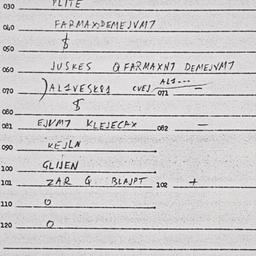 030 YLITE
040 FARMAXDEMEJVM7
$
050
060 JUSKES QFARMAXN7 DEMEJVM7
070 )AL1VESK81 CVEJ 071 AL1--- –
$
080
081 EJVM7 KLEJECAX 082 –
090 KEJLN
100 GLIJEN
101 ZAR Q BLAJPT 102 +
110 0
120 0